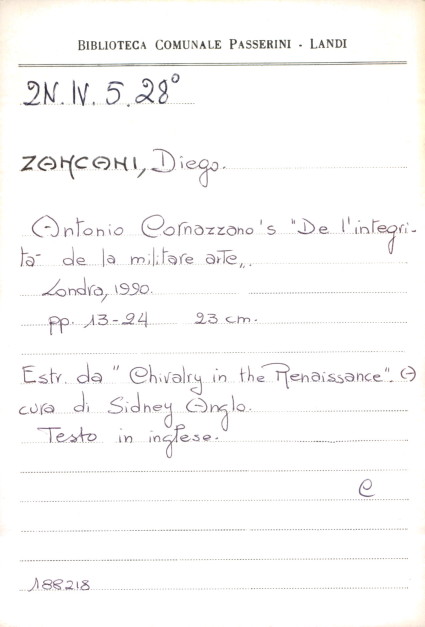 BIBLIOTECA COMUNALE PASSERINI - LANDI
2N.IV.5.28°
ZANCANI, Diego.
Antonio Cornazzano's "De l'integri-
tà de la militare arte„.
Londra, 1990.
pp. 13-24 23 cm.
Estr. da "Chivalry in the Renaissance". A
cura di Sidney Anglo.
Testo in inglese.
C
188218